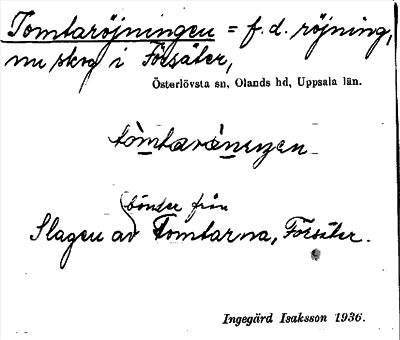 Tomtaröjningen = f. d. röjning,
nu skog i Försäter,
Österlövsta sn, Olands hd, Uppsala län.
bönder från
Slagen av Tomtarna, Försäter.
Ingegärd Isaksson 1936.